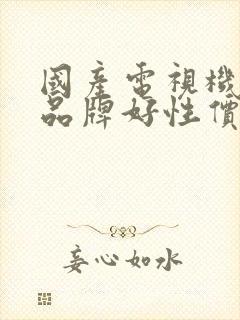 國產電視機
品牌好性價
妄心如水